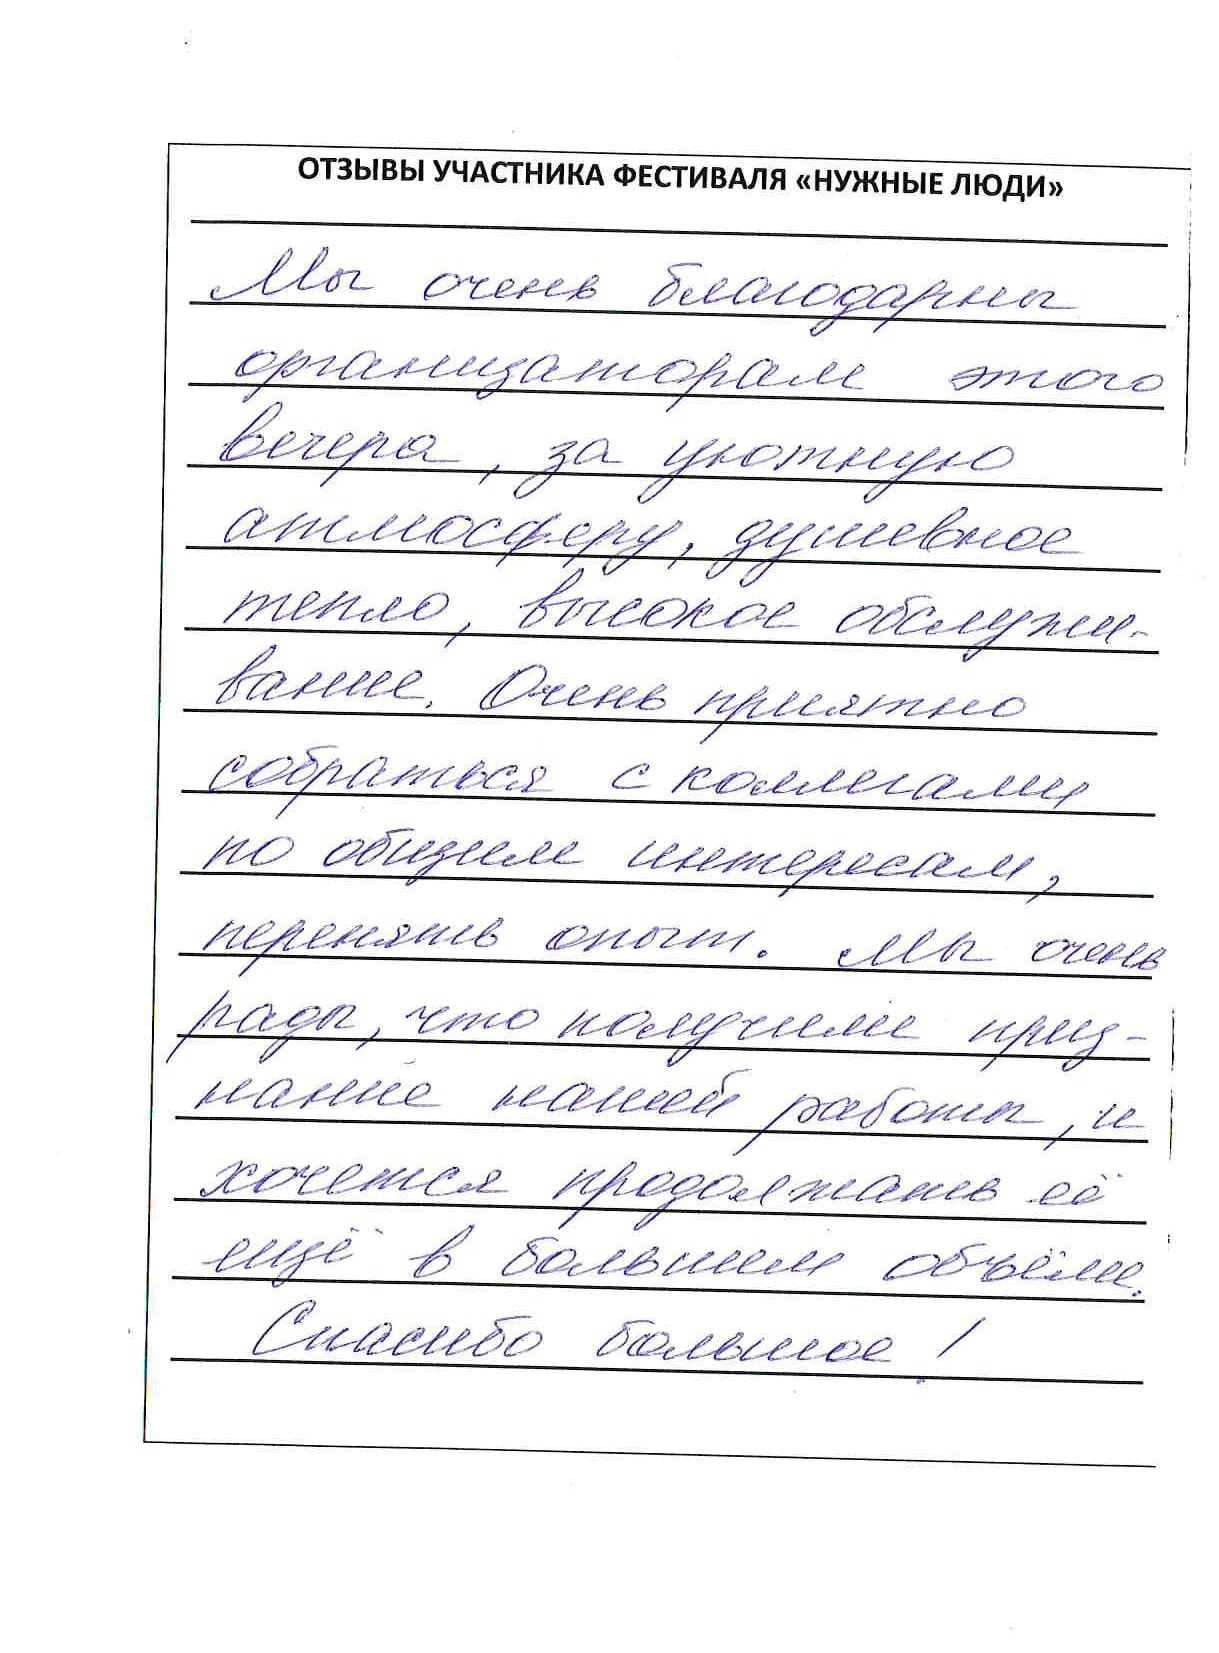 ОТЗЫВЫ УЧАСТНИКА ФЕСТИВАЛЯ «НУЖНЫЕ ЛЮДИ»
Мы очень благодарны
организаторам этого
вечера, за уютную
атмосферу, душевное
тепло, высокое обслужи-
вание. Очень приятно
собраться с коллегами
по общим интересам,
перенять опыт. Мы очень
рады, что получили приз-
нание нашей работы, и
хочется продолжать её
ещё в большем объёме.
Спасибо большое!